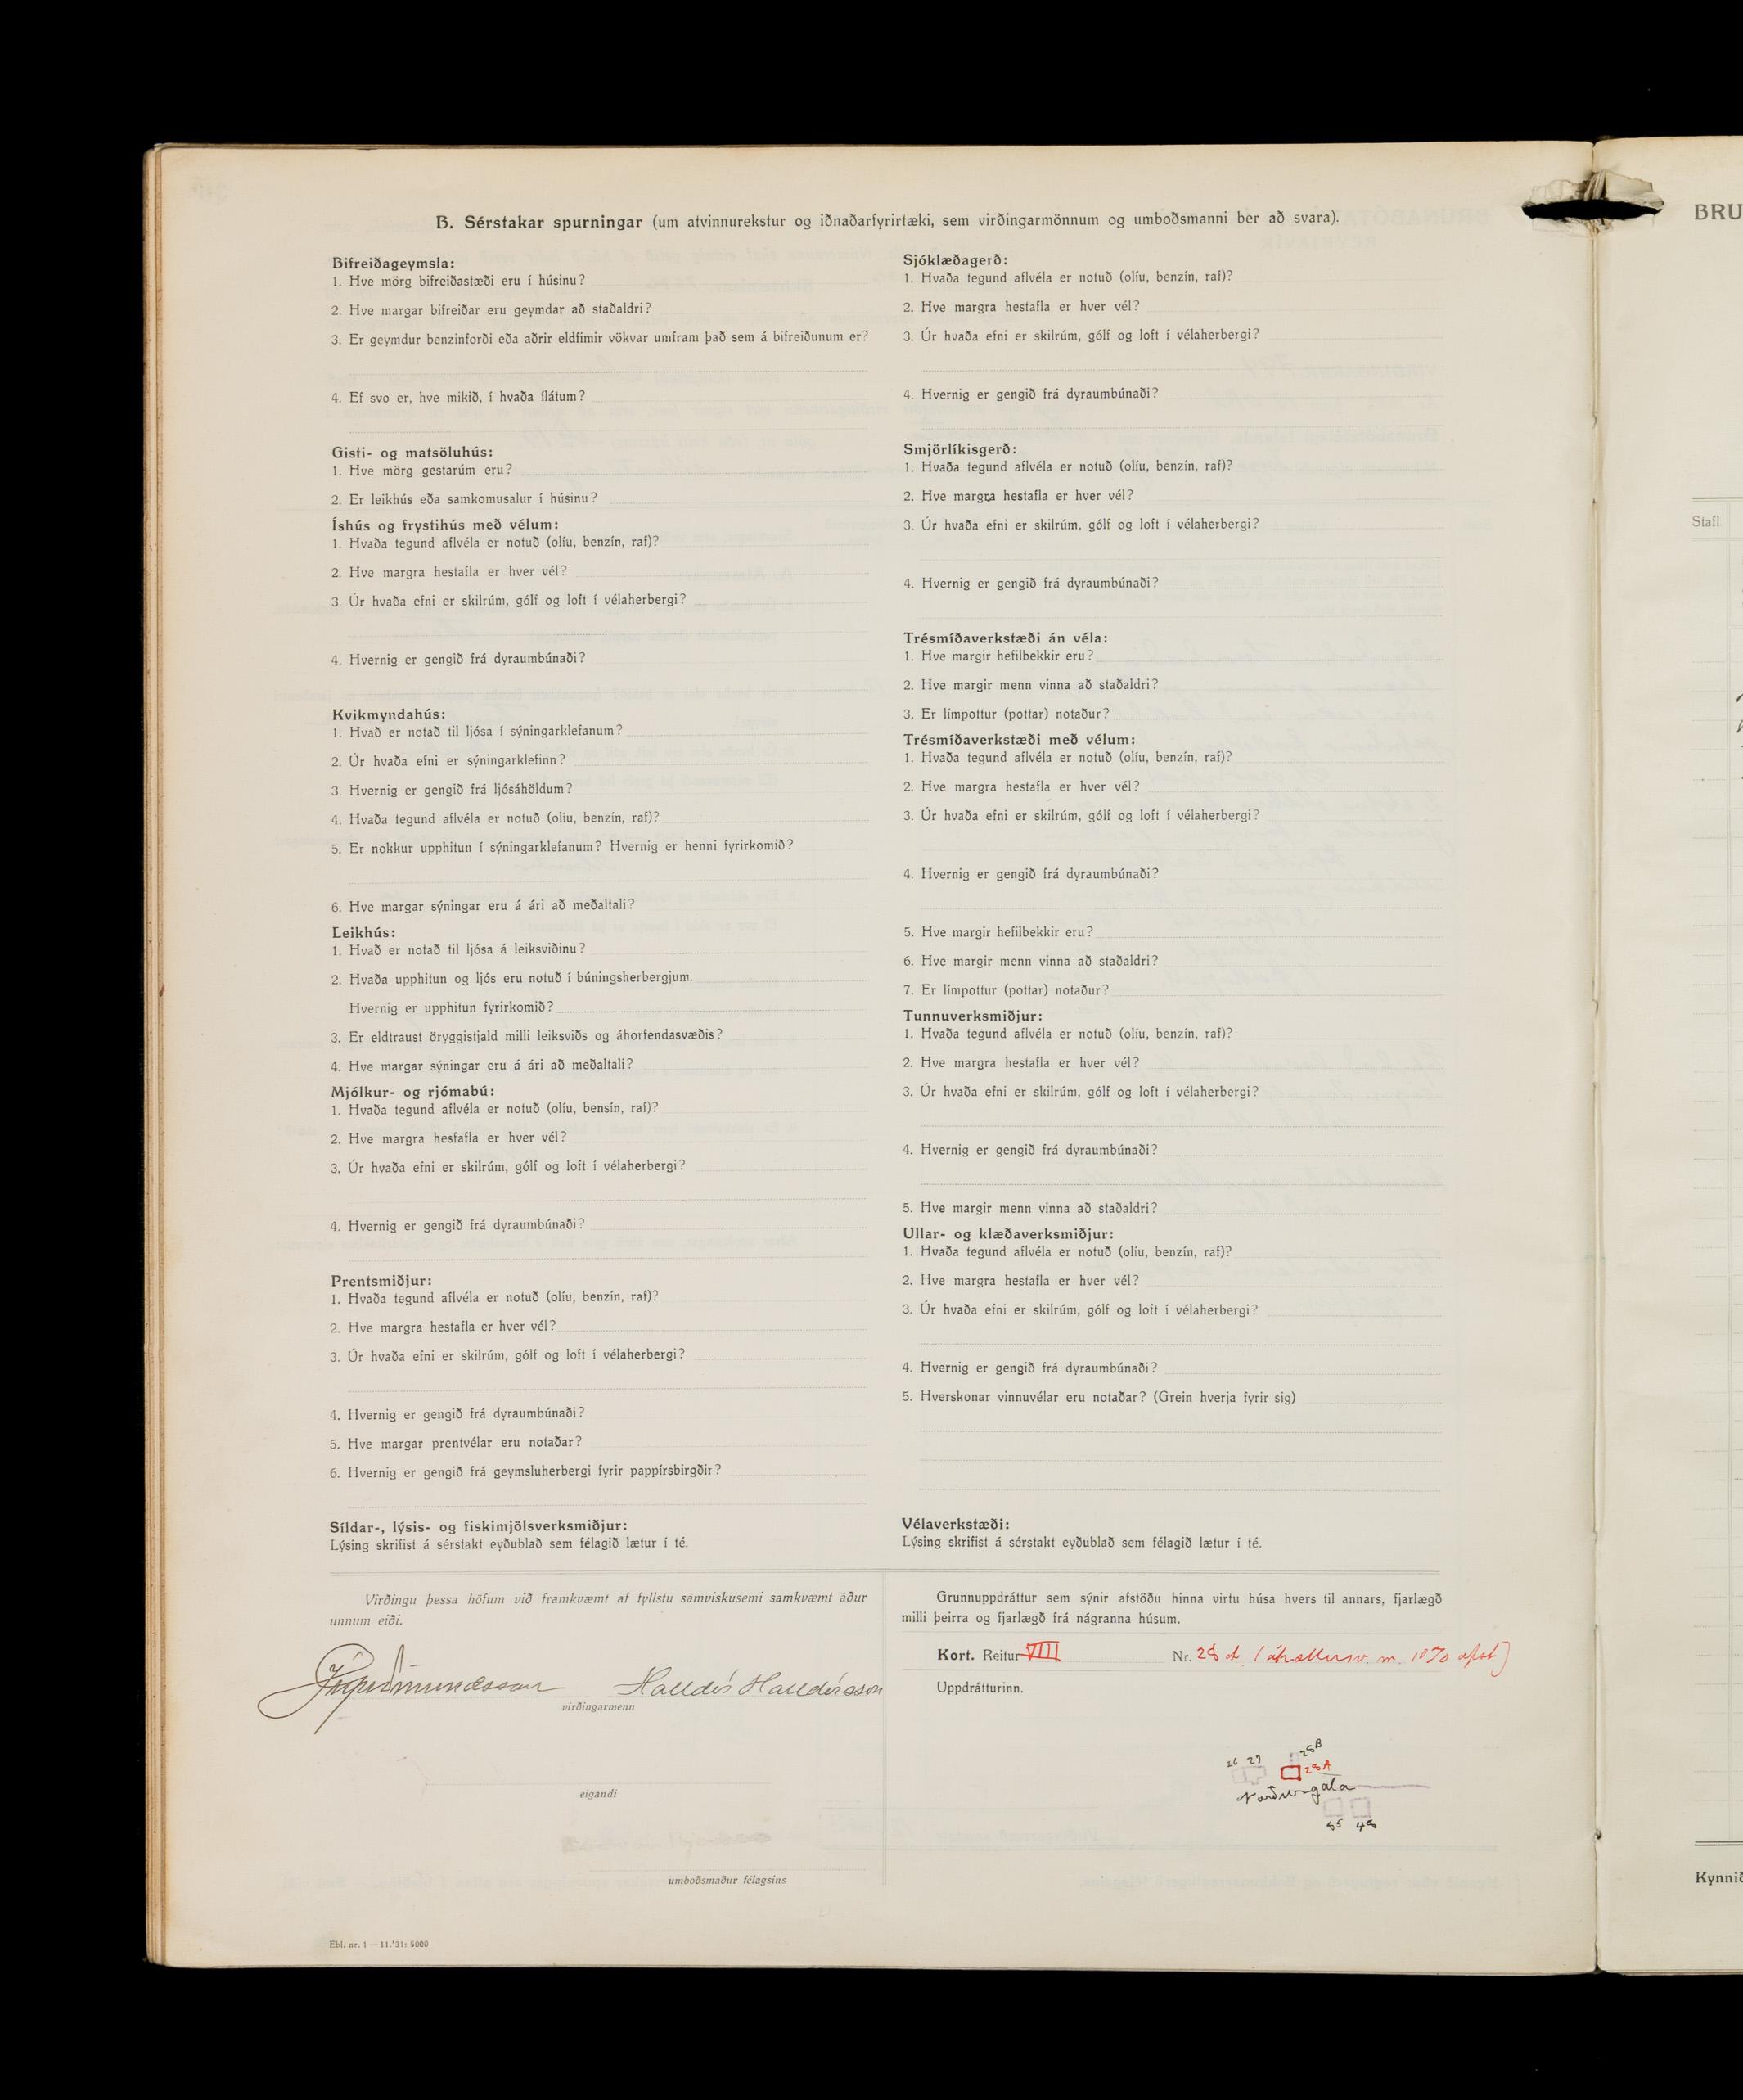 B. Sérstakar spurningar (um atvinnurekstur og iðnaðarfyrirtæki, sem virðingarmönnum og umboðsmanni ber að svara).
Bifreiðageymsla:
1. Hve mörg bifreiðastæði eru í húsinu?
2. Hve margar bifreiðar eru geymdar að staðaldri?
3. Er geymdur benzinforði eða aðrir eldfimir vökvar umfram það sem á bifreiðunum er?
4. Ef svo er, hve mikið, í hvaða ílátum?
Gisti- og matsöluhús:
1. Hve mörg gestarúm eru?
2. Er leikhús eða samkomusalur í húsinu?
Íshús og frystihús með vélum:
1. Hvaða tegund aflvéla er notuð (olíu, benzín, raf)?
2. Hve margra hestafla er hver vél?
3. Úr hvaða efni er skilrúm, gólf og loft í vélaherbergi?
4. Hvernig er gengið frá dyraumbúnaði?
Kvikmyndahús:
1. Hvað er notað til ljósa í sýningarklefanum?
2. Úr hvaða efni er sýningarklefinn?
3. Hvernig er gengið frá ljósáhöldum?
4. Hvaða tegund aflvéla er notuð (olíu, benzín, raf)?
5. Er nokkur upphitun í sýningarklefanum? Hvernig er henni fyrirkomið?
6. Hve margar sýningar eru á ári að meðaltali?
Leikhús:
1. Hvað er notað til ljósa á leiksviðinu?
2. Hvaða upphitun og ljós eru notuð í búningsherbergjum.
Hvernig er upphitun fyrirkomið?
3. Er eldtraust öryggistjald milli leiksviðs og áhorfendasvæðis?
4. Hve margar sýningar eru á ári að meðaltali?
Mjólkur- og rjómabú:
1. Hvaða tegund aflvéla er notuð (olíu, bensín, raf)?
2. Hve margra hesfafla er hver vél?
3. Úr hvaða efni er skilrúm, gólf og loft í vélaherbergi?
4. Hvernig er gengið frá dyraumbúnaði?
Prentsmiðjur:
1. Hvaða tegund aflvéla er notuð (olíu, benzín, raf)?
2. Hve margra hestafla er hver vél?
3. Úr hvaða efni er skilrúm, gólf og loft í vélaherbergi?
4. Hvernig er gengið frá dyraumbúnaði?
5. Hve margar prentvélar eru notaðar?
6. Hvernig er gengið frá geymsluherbergi fyrir pappírsbirgðir?
Síldar-, lýsis- og fiskimjölsverksmiðjur:
Lýsing skrifist á sérstakt eyðublað sem félagið lætur í té.
Sjóklæðagerð:
1. Hvaða tegund aflvéla er notuð (olíu, benzín, raf)?
2. Hve margra hestafla er hver vél?
3. Úr hvaða efni er skilrúm, gólf og loft í vélaherbergi?
4. Hvernig er gengið frá dyraumbúnaði?
Smjörlíkisgerð:
1. Hvaða tegund aflvéla er notuð (olíu, benzín, raf)?
2. Hve margra hestafla er hver vél?
3. Úr hvaða efni er skilrúm, gólf og loft í vélaherbergi?
4. Hvernig er gengið frá dyraumbúnaði?
Trésmíðaverkstæði án véla:
1. Hve margir hefilbekkir eru?
2. Hve margir menn vinna að staðaldri?
3. Er límpottur (pottar) notaður?
Trésmíðaverkstæði með vélum:
1. Hvaða tegund aflvéla er notuð (olíu, benzín, raf)?
2. Hve margra hestafla er hver vél?
3. Úr hvaða efni er skilrúm, gólf og loft í vélaherbergi?
4. Hvernig er gengið frá dyraumbúnaði?
5. Hve margir hefilbekkir eru?
6. Hve margir menn vinna að staðaldri?
7. Er límpottur (pottar) notaður?
Tunnuverksmiðjur:
1. Hvaða tegund aflvéla er notuð (olíu, benzín, raf)?
2. Hve margra hestafla er hver vél?
3. Úr hvaða efni er skilrúm, gólf og loft í vélaherbergi?
4. Hvernig er gengið frá dyraumbúnaði?
5. Hve margir menn vinna að staðaldri?
Ullar- og klæðaverksmiðjur:
1. Hvaða tegund aflvéla er notuð (olíu, benzín, raf)?
2. Hve margra hestafla er hver vél?
3. Úr hvaða efni er skilrúm, gólf og loft í vélaherbergi?
4. Hvernig er gengið frá dyraumbúnaði?
5. Hverskonar vinnuvélar eru notaðar? (Grein hverja fyrir sig)
Vélaverkstæði:
Lýsing skrifist á sérstakt eyðublað sem félagið lætur í té.
Virðingu þessa höfum við framkvæmt af fyllstu samviskusemi samkvæmt áður
unnum eiði.
Halldór Halldórsson
virðingarmenn
eigandi
umboðsmaður félagsins
Grunnuppdráttur sem sýnir afstöðu hinna virtu húsa hvers til annars, fjarlægð
milli þeirra og fjarlægð frá nágranna húsum.
Kort. Reitur VIII Nr. 28
Uppdrátturinn.
26 27 28B
28A
Norðurgata
49
Ebl. nr. 1 — 11.'31: 5000
BRU
Stafl.
Kynnið